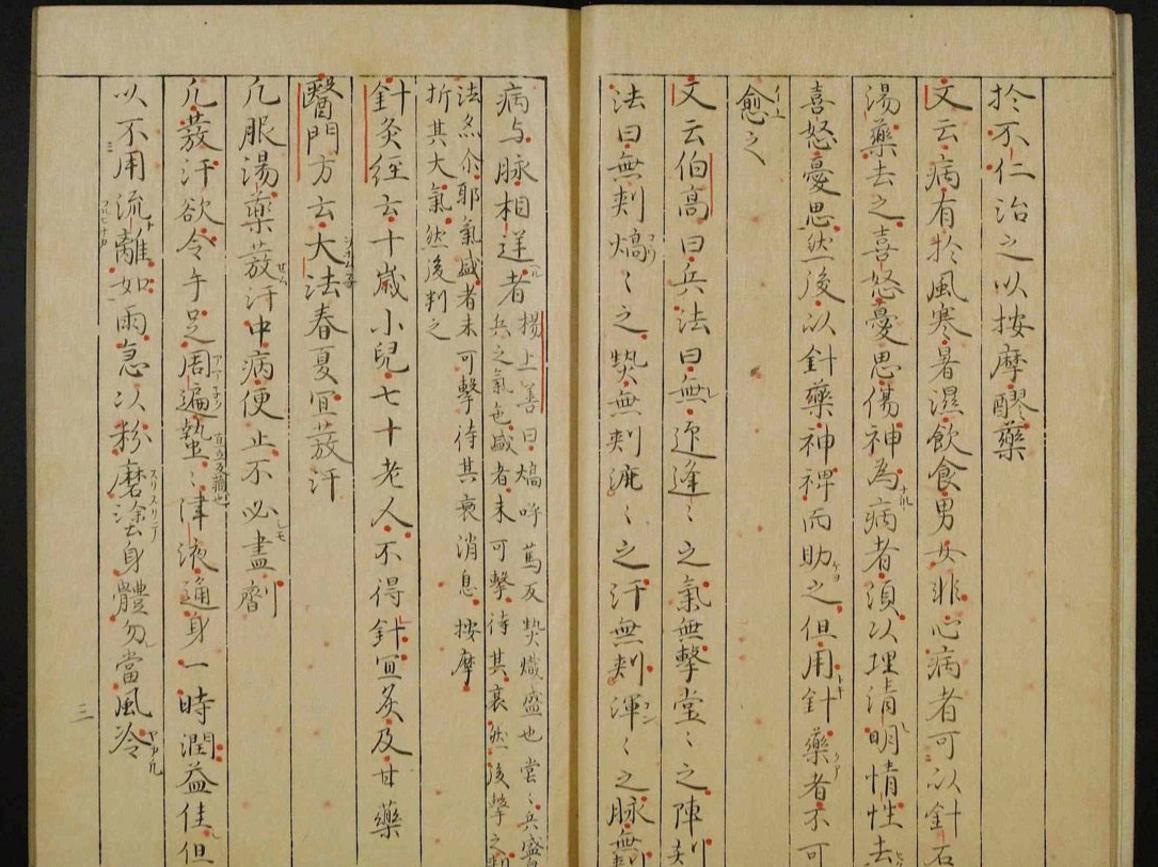 於不仁治之以按摩醪藥
文云病有於風寒暑濕飲食男女非心病者可以針石
湯藥去之喜怒憂思傷神為病者須以理清明情性去
喜怒憂思然後以針藥神裨而助之但用針藥者不可
愈之
文云伯高曰兵法曰無迎逢〻之氣無擊堂〻之陣刾
法曰無刾熇〻之熱無刾漉〻之汗無刾渾〻之脉無刾
病与脉相逆者
楊上善曰熇呼篤反熱熾盛也堂〻兵盛
兵之氣色盛者未可擊待其衰然後擊之刾
法亦尒耶氣盛者未可擊待其衰消息按摩
折其大氣然後刺之
針灸經云十歲小兒七十老人不得針宜灸及甘藥
醫門方云大法春夏宜發汗
凡服湯藥發汗中病便止不必盡劑
凡發汗欲令手足周遍漐〻津液通身一時潤益佳但
以不用流離如雨急以粉磨塗身體勿當風冷
三